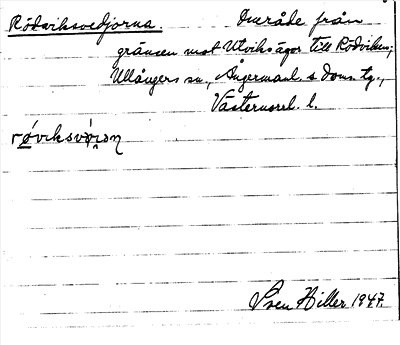 Rödviksvedjorna. Område från
gränsen mot Utviksägor till Rödviken;
Ullångers sn, Ångermanl. s. doms. tg.,
Västernorrl. l.
Sven Hiller 1947.